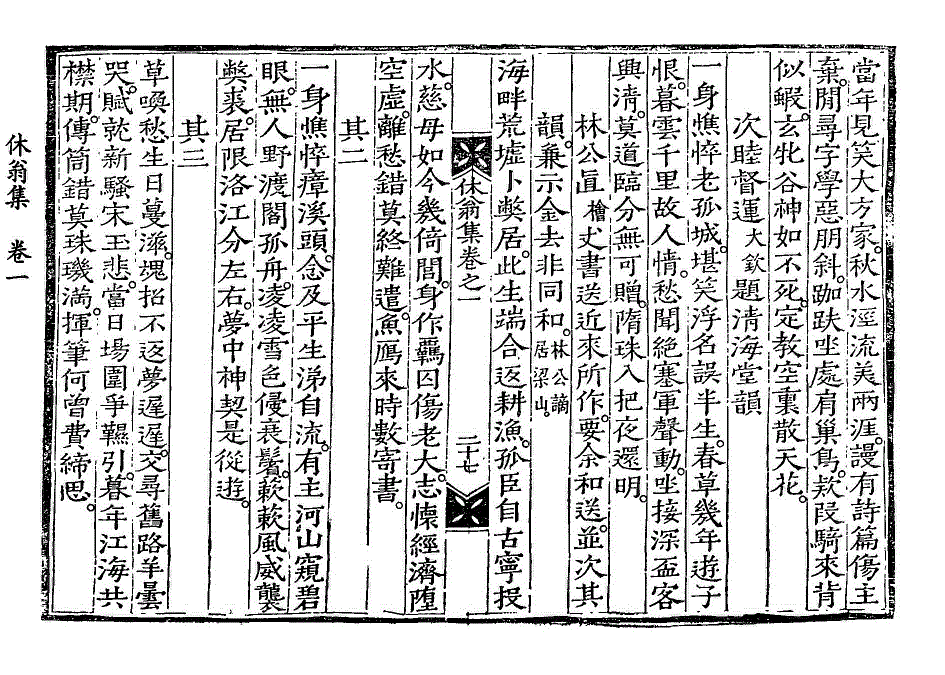 當年見笑大方家。秋水涇流美兩涯。謾有詩篇傷主
棄。閒尋字學惡朋斜。跏趺坐處肩巢鳥。款段騎來背
似鰕。玄牝谷神如不死。定教空裏散天花。
次睦督運大欽題淸海堂韻
一身憔悴老孤城。堪笑浮名誤半生。春草幾年遊子
恨。暮雲千里故人情。愁聞絕塞軍聲動。坐接深盃客
興淸。莫道臨分無可贈。隋珠入把夜還明。
林公眞檜丈書送近來所作。要余和送。並次其
韻。兼示金去非同和。林公謫居梁山。
海畔荒墟卜弊居。此生端合返耕漁。孤臣自古寧投
休翁集卷之一 二十七
水。慈母如今幾倚閭。身作羈囚傷老大。志懷經濟墮
空虛。離愁錯莫終難遣。魚鴈來時數寄書。
其二
一身憔悴瘴溪頭。念及平生涕自流。有主河山窺碧
眼。無人野渡閣孤舟。凌凌雪色侵衰鬢。蔌蔌風威襲
弊裘。居限洛江分左右。夢中神契是從遊。
其三
草喚愁生日蔓滋。魂招不返夢遲遲。交尋舊路羊曇
哭。賦就新騷宋玉悲。當日場圍爭靷引。暮年江海共
襟期。傳筒錯莫珠璣滿。揮筆何曾費締思。
休翁集 卷一